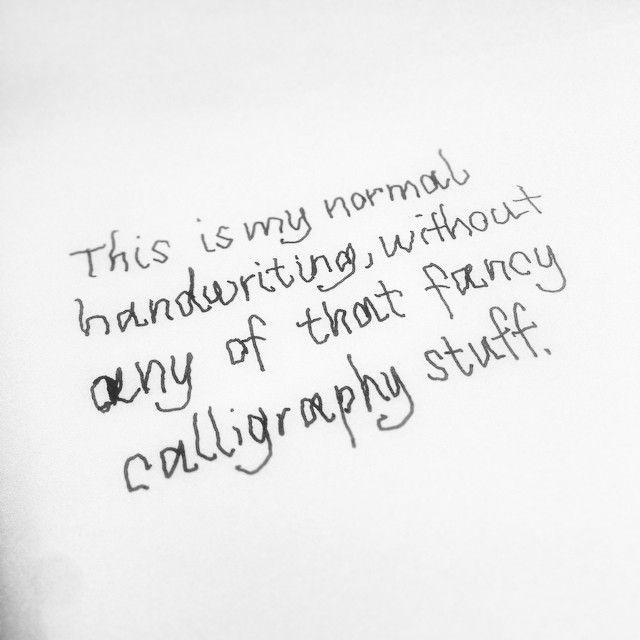 This is my normal
handwriting, without
any of that fancy
calligraphy stuff.